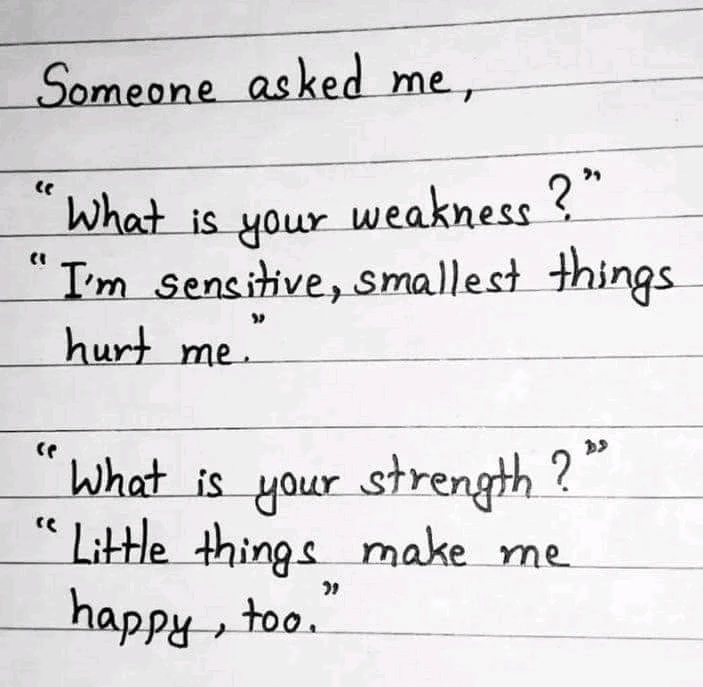 Someone asked me,
"What is your weakness?"
"I'm sensitive, smallest things
hurt me."
"What is your strength?"
"Little things make me
happy, too."